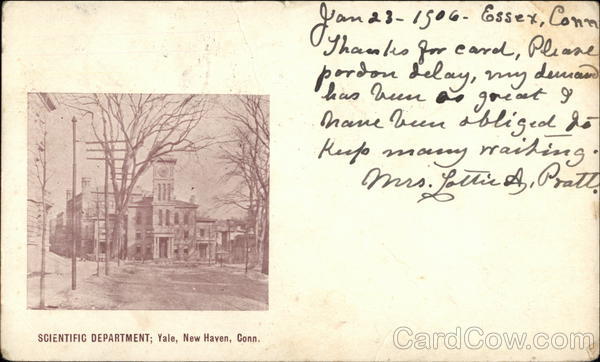 Jan 23 - 1906 - Essex, Conn
Thanks for card, Please
pardon delay, my demand
has been so great I
have been obliged to
keep many waiting.
Mrs. Lottie A. Pratt.
SCIENTIFIC DEPARTMENT; Yale, New Haven, Conn.
CardCow.com